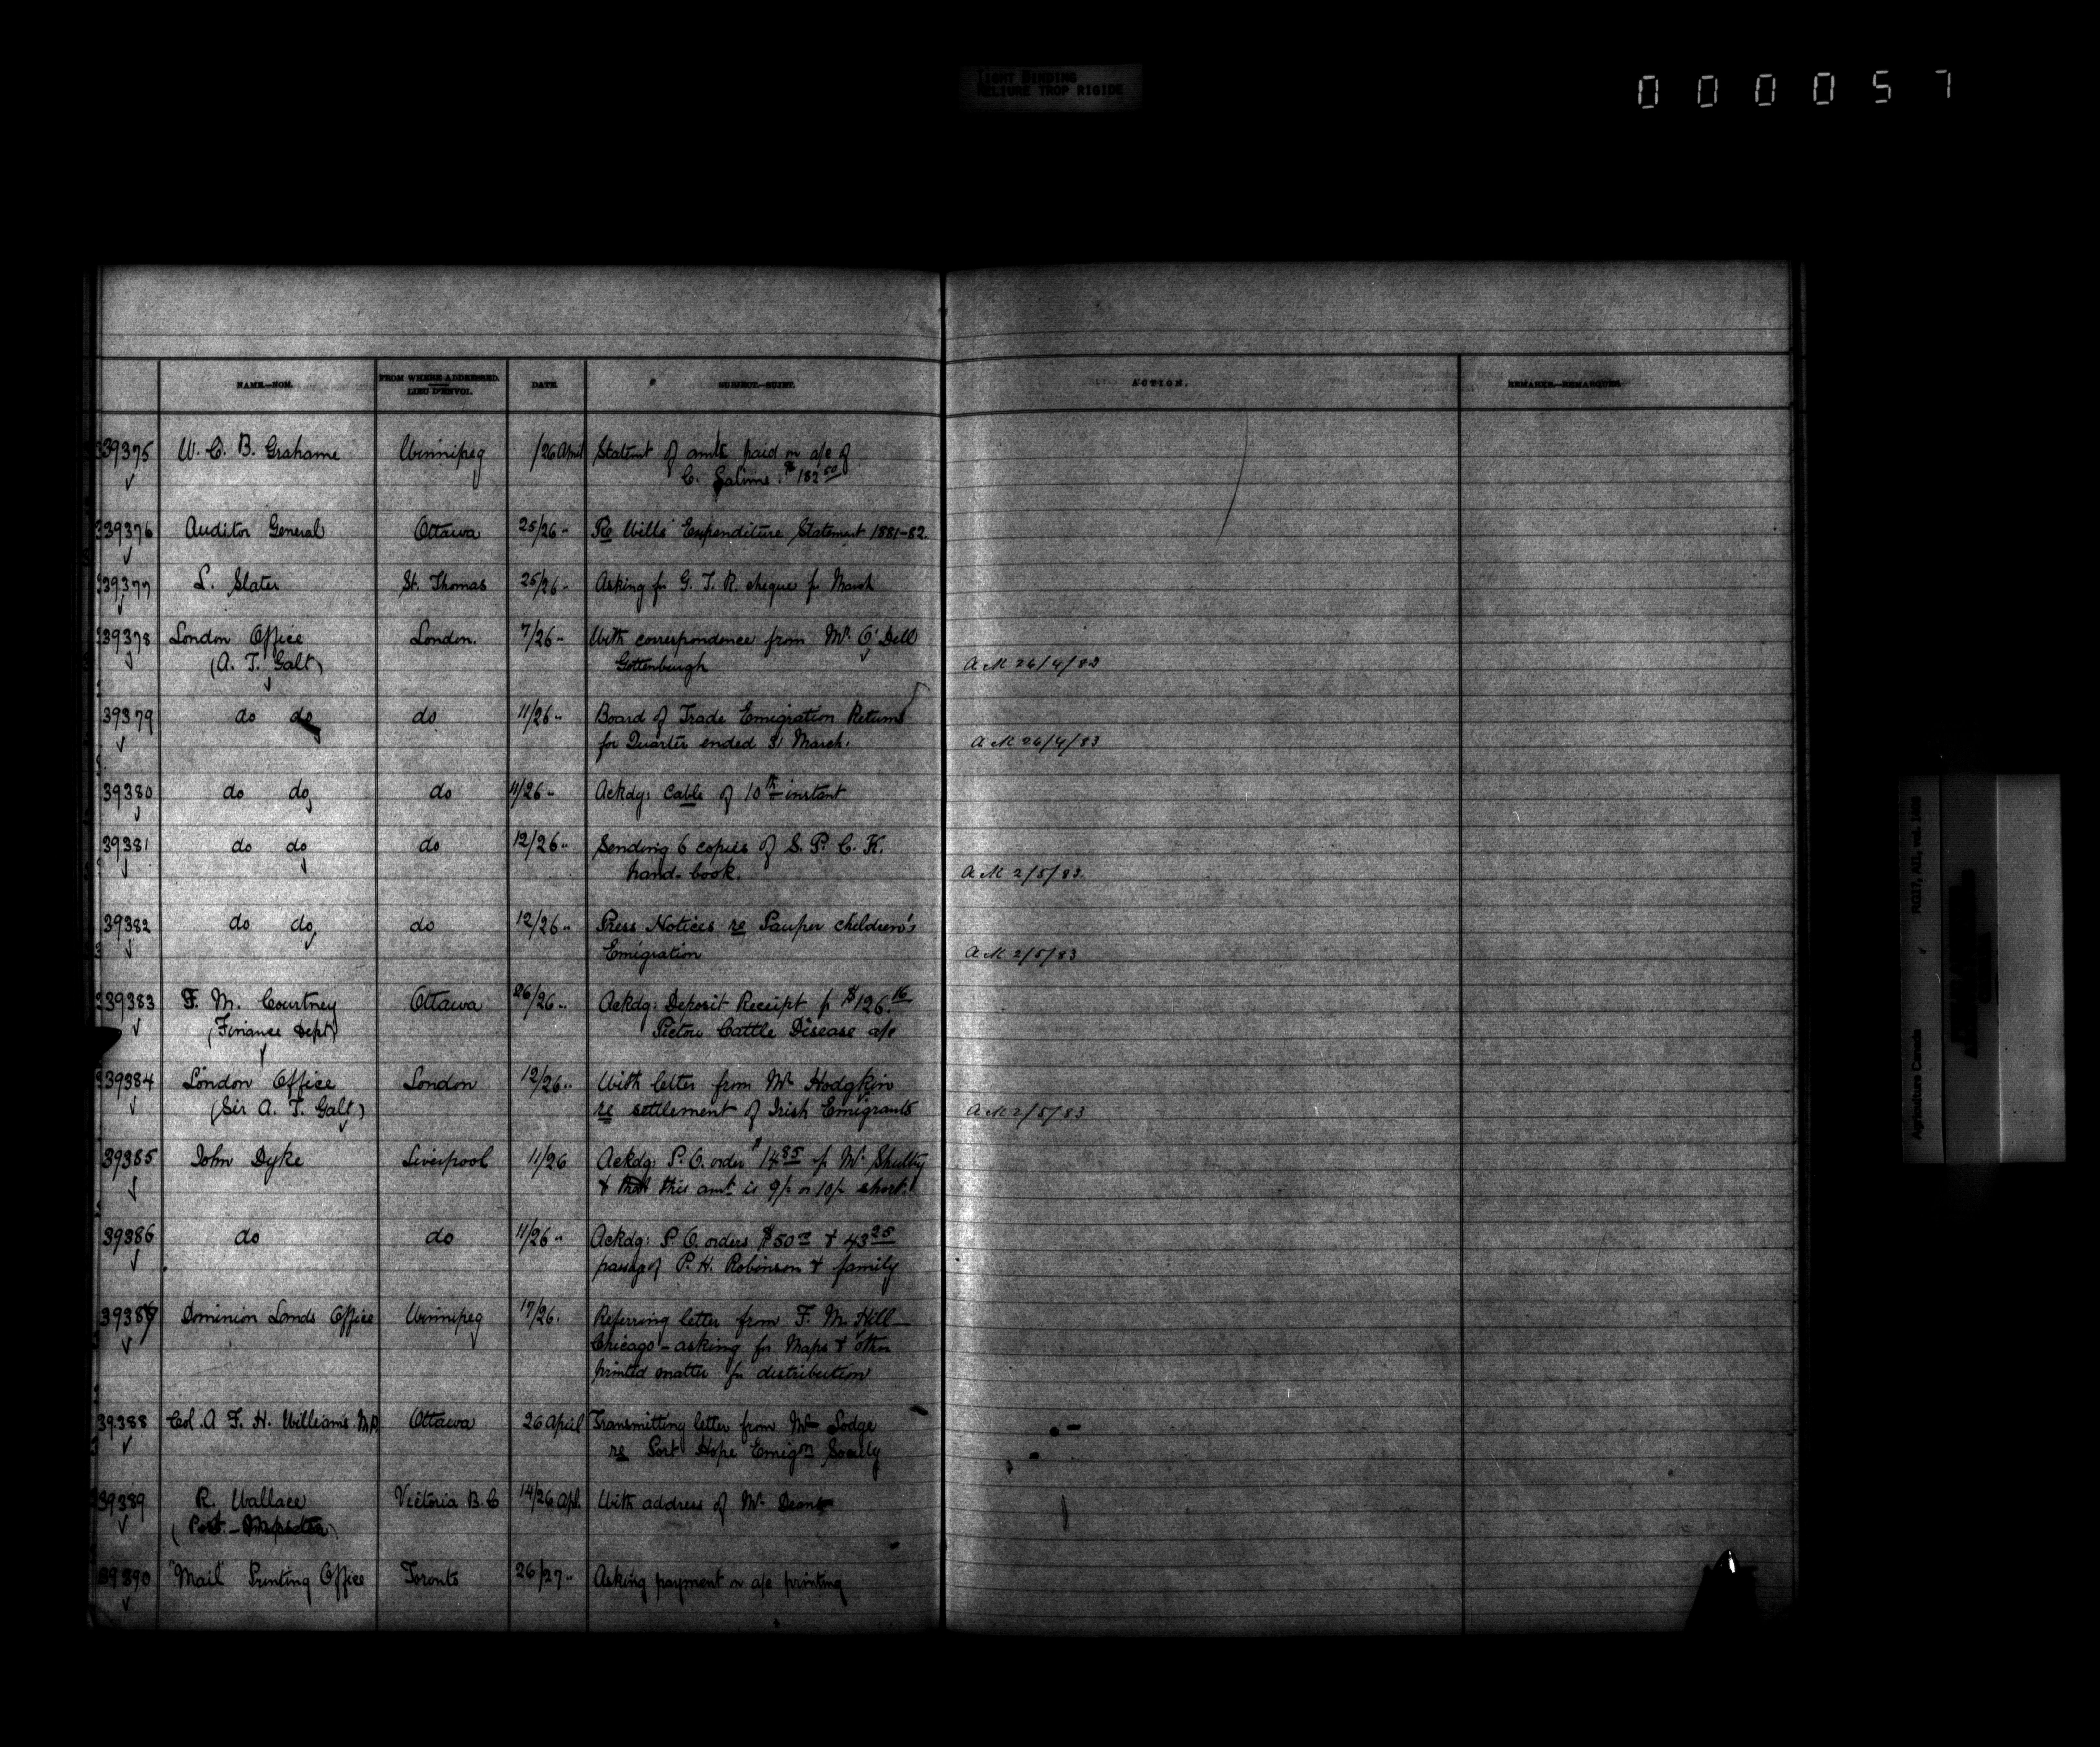 TIGHT BINDING
RELIURE TROP RIGIDE
000057
NAME.—NOM. FROM WHERE ADDRESSED. DATE. SUBJECT.—SUJET. ACTION. REMARKS.—REMARQUES.
LIEU D'ENVOI.
39375 W. C. B. Grahame Winnipeg /26 April Statemt of amts paid on a/c of
C. $182.50
39376 Auditor General Ottawa 25/26 " Re Wills' Expenditure Statement 1881-82.
39377 L. Slater St. Thomas 25/26 " Asking for G. T. R. cheque for March
39378 London Office London. 7/26 " With correspondence from Mr. O'Dell
(A. T. Galt) Gottenburgh A M 26/4/83
39379 do do do 11/26 " Board of Trade Emigration Returns
for Quarter ended 31 March. A M 26/4/83
39380 do do do 11/26 " Ackdg: Cable of 10th instant
39381 do do do 12/26 " Sending 6 copies of S. P. C. K.
hand-book. A M 2/5/83
39382 do do do 12/26 " Press Notices re Pauper children's
Emigration A M 2/5/83
39383 F. M. Courtney Ottawa 26/26 " Ackdg: Deposit Receipt for $126.16
(Finance Dept) Pictou Cattle Disease a/c
39384 London Office London 12/26 " With letter from Mr Hodgkin
(Sir A. T. Galt) re settlement of Irish Emigrants A M 2/5/83
39385 John Dyke Liverpool 11/26 Ackdg: P. O. order $14.85 fr Mr.
& that this amt is 9/- or 10/- short.
39386 do do 11/26 " Ackdg: P. O. orders $50.00 & 43.25
passage of P. H. Robinson & family
39387 Dominion Lands Office Winnipeg 17/26. Referring letter from F. M. Hill—
Chicago - asking for Maps & other
printed matter for distribution
39388 Col. A F. H. Williams M.P. Ottawa 26 April Transmitting letter from Mr Lodge
re Port Hope Emign Society
39389 R. Wallace Victoria B.C 14/26 Apl. With address of Mr.
(Post-
39390 "Mail" Printing Office Toronto 26/27 " Asking payment on a/c printing
Agriculture Canada RG17, AII, vol.